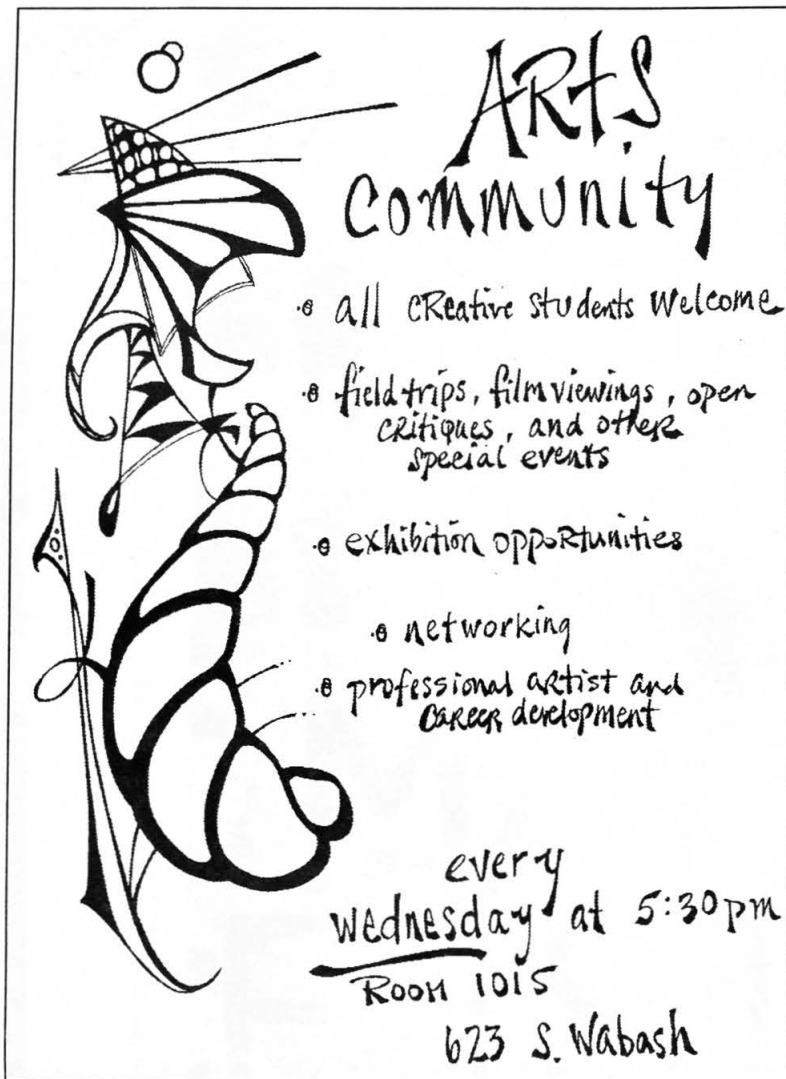 ARtS
community
all cReative students welcome
field trips, film viewings, open
cRitiques, and otheR
special events
exhibition oppoRtunities
networking
professional aRtist and
caReeR development
every
wednesday at 5:30pm
ROOM 1015
623 S. Wabash